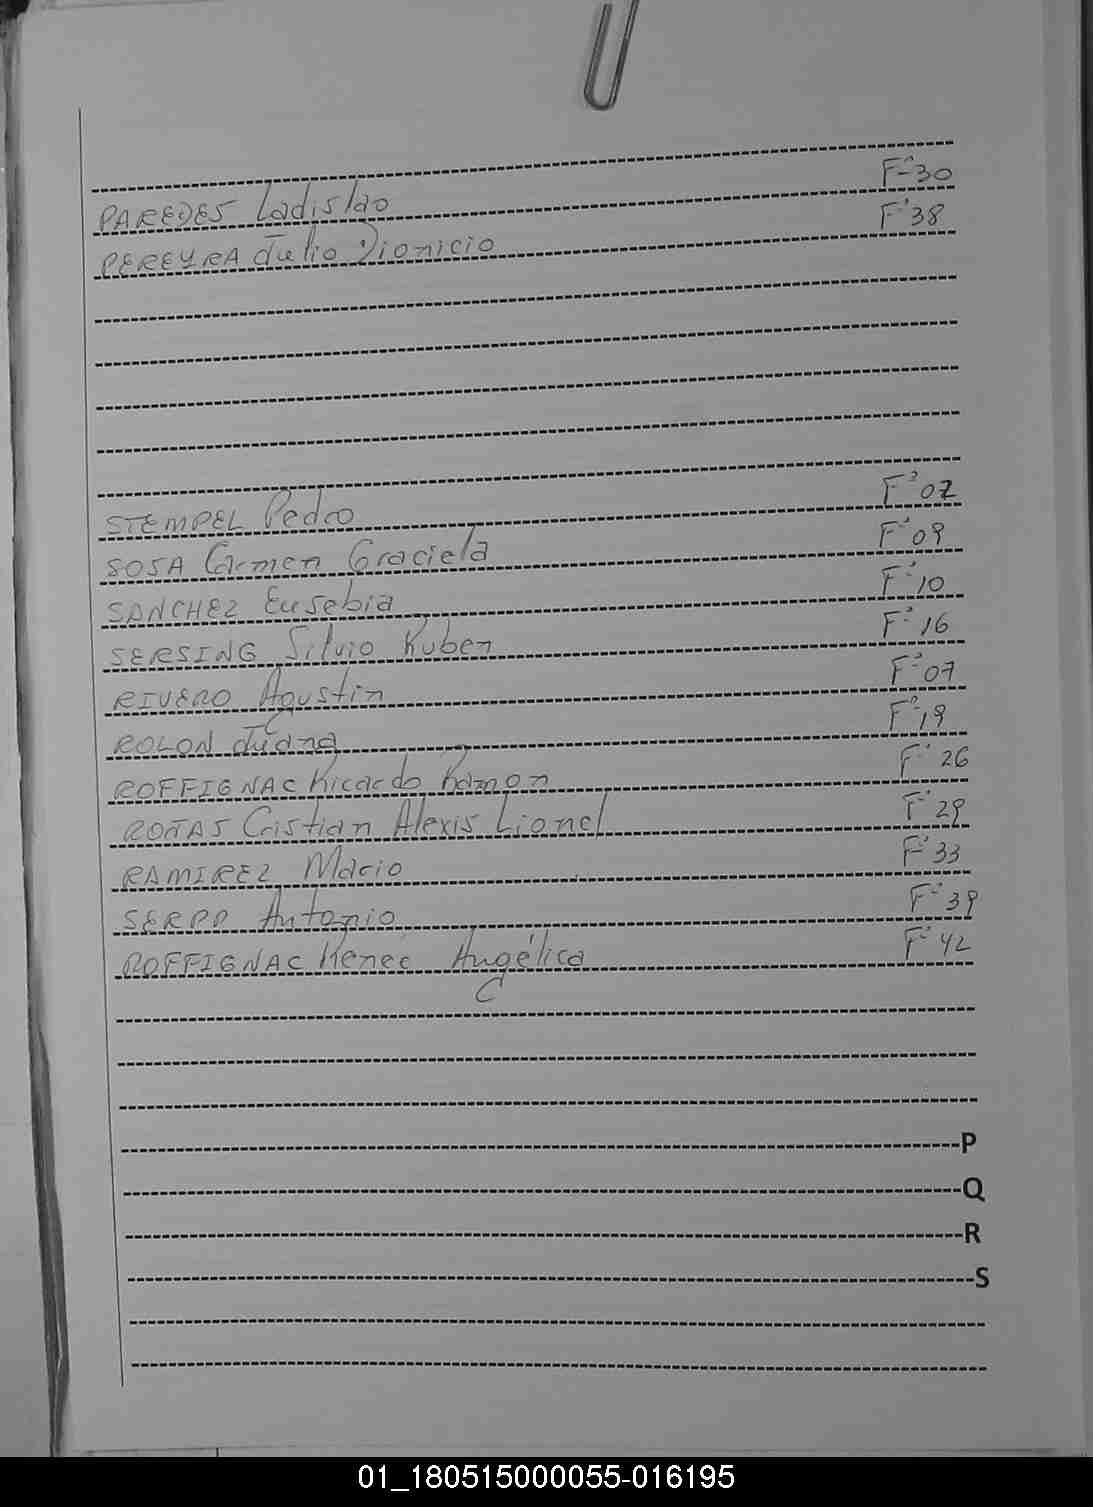 PAREDES Ladislao F° 30
PEREYRA Julio Dionicio F° 38
STEMPEL Pedro F° 07
SOSA Carmen Graciela F° 09
SANCHEZ Eusebia F° 10
SERSING Silvio Ruben F° 16
RIVERO Agustin F° 07
ROLON Juana F° 19
ROFFIGNAC Ricardo Ramon F° 26
ROJAS Cristian Alexis Lionel F° 29
RAMIREZ Mario F° 33
Antonio F° 39
ROFFIGNAC Reneé Angélica F° 42
P
Q
R
S
01_180515000055-016195